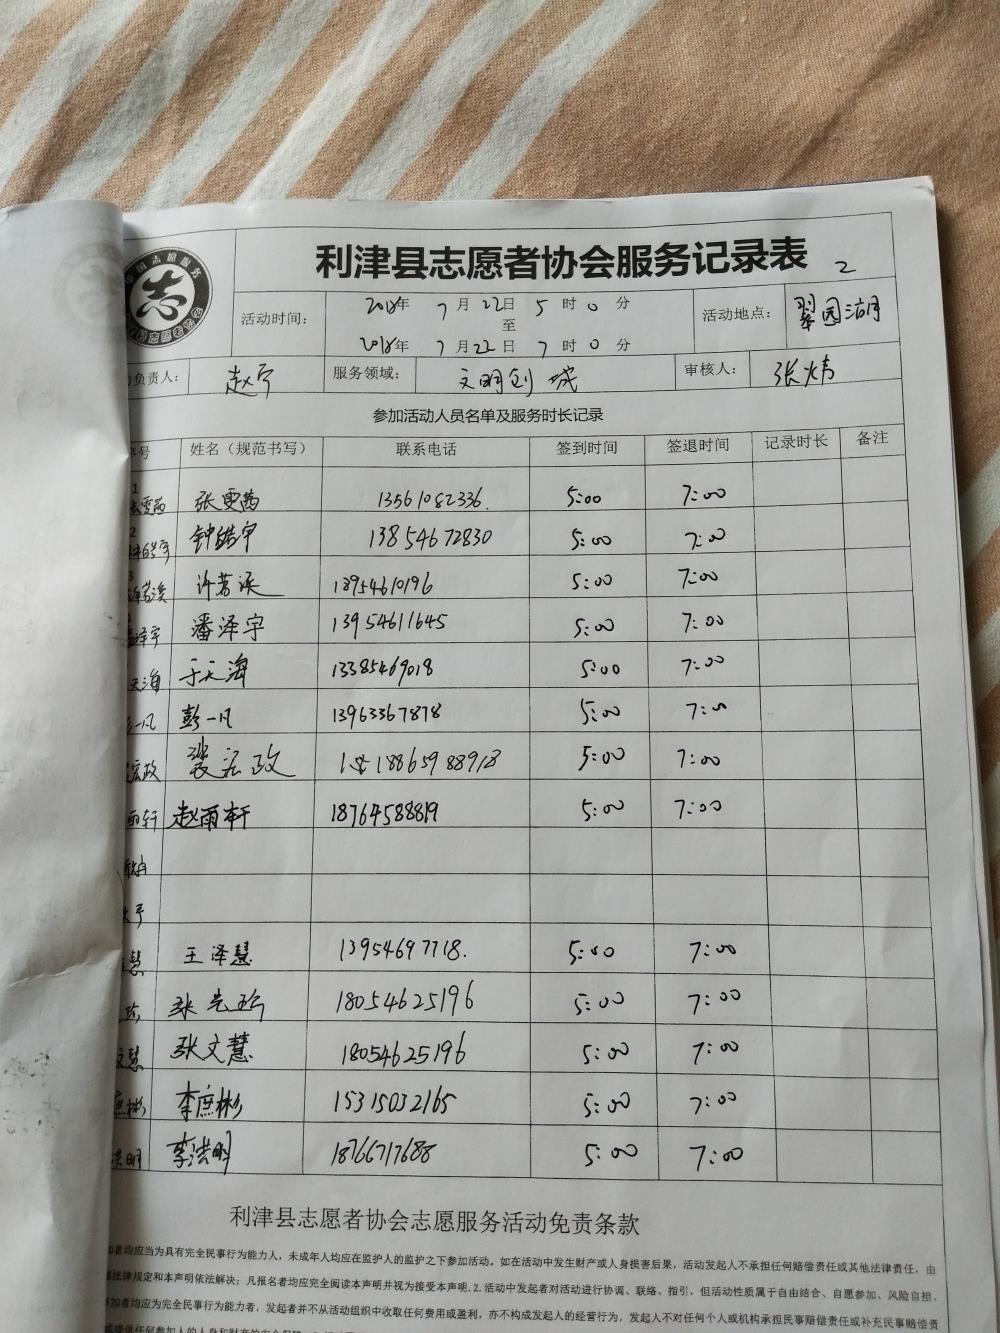 利津县志愿者协会服务记录表 2
志
活动时间： 2018年 7月22日 5时0分
至
2018年 7月22日 7时0分
活动地点： 翠园湖
负责人： 赵宁 服务领域： 文明创城 审核人： 张炜
参加活动人员名单及服务时长记录
号 姓名（规范书写） 联系电话 签到时间 签退时间 记录时长 备注
1 张雯茜 13561082336. 5:00 7:00
2 钟皓宇 13854672830 5:00 7:00
3 许若溪 13954610196 5:00 7:00
泽宇 潘泽宇 13954611645 5:00 7:00
天海 于天海 13385469018 5:00 7:00
一凡 彭一凡 13963367878 5:00 7:00
宏政 裴宏政 18865988918 5:00 7:00
雨轩 赵雨轩 18764588819 5:00 7:00
慧 王泽慧 13954697718. 5:00 7:00
张先珍 18054625196 5:00 7:00
文慧 张文慧 18054625196 5:00 7:00
庶彬 李庶彬 15315032165 5:00 7:00
洪明 李洪明 18766717688 5:00 7:00
利津县志愿者协会志愿服务活动免责条款
者均应当为具有完全民事行为能力人，未成年人均应在监护人的监护之下参加活动。如在活动中发生财产或人身损害后果，活动发起人不承担任何赔偿责任或其他法律责任，由
法律规定和本声明依法解决；凡报名者均应完全阅读本声明并视为接受本声明。2.活动中发起者对活动进行协调、联络、指引，但活动性质属于自由结合、自愿参加、风险自担、
加者均应为完全民事行为能力者，发起者并不从活动组织中收取任何费用或盈利，亦不构成发起人的经营行为，发起人不对任何个人或机构承担民事赔偿责任或补充民事赔偿责